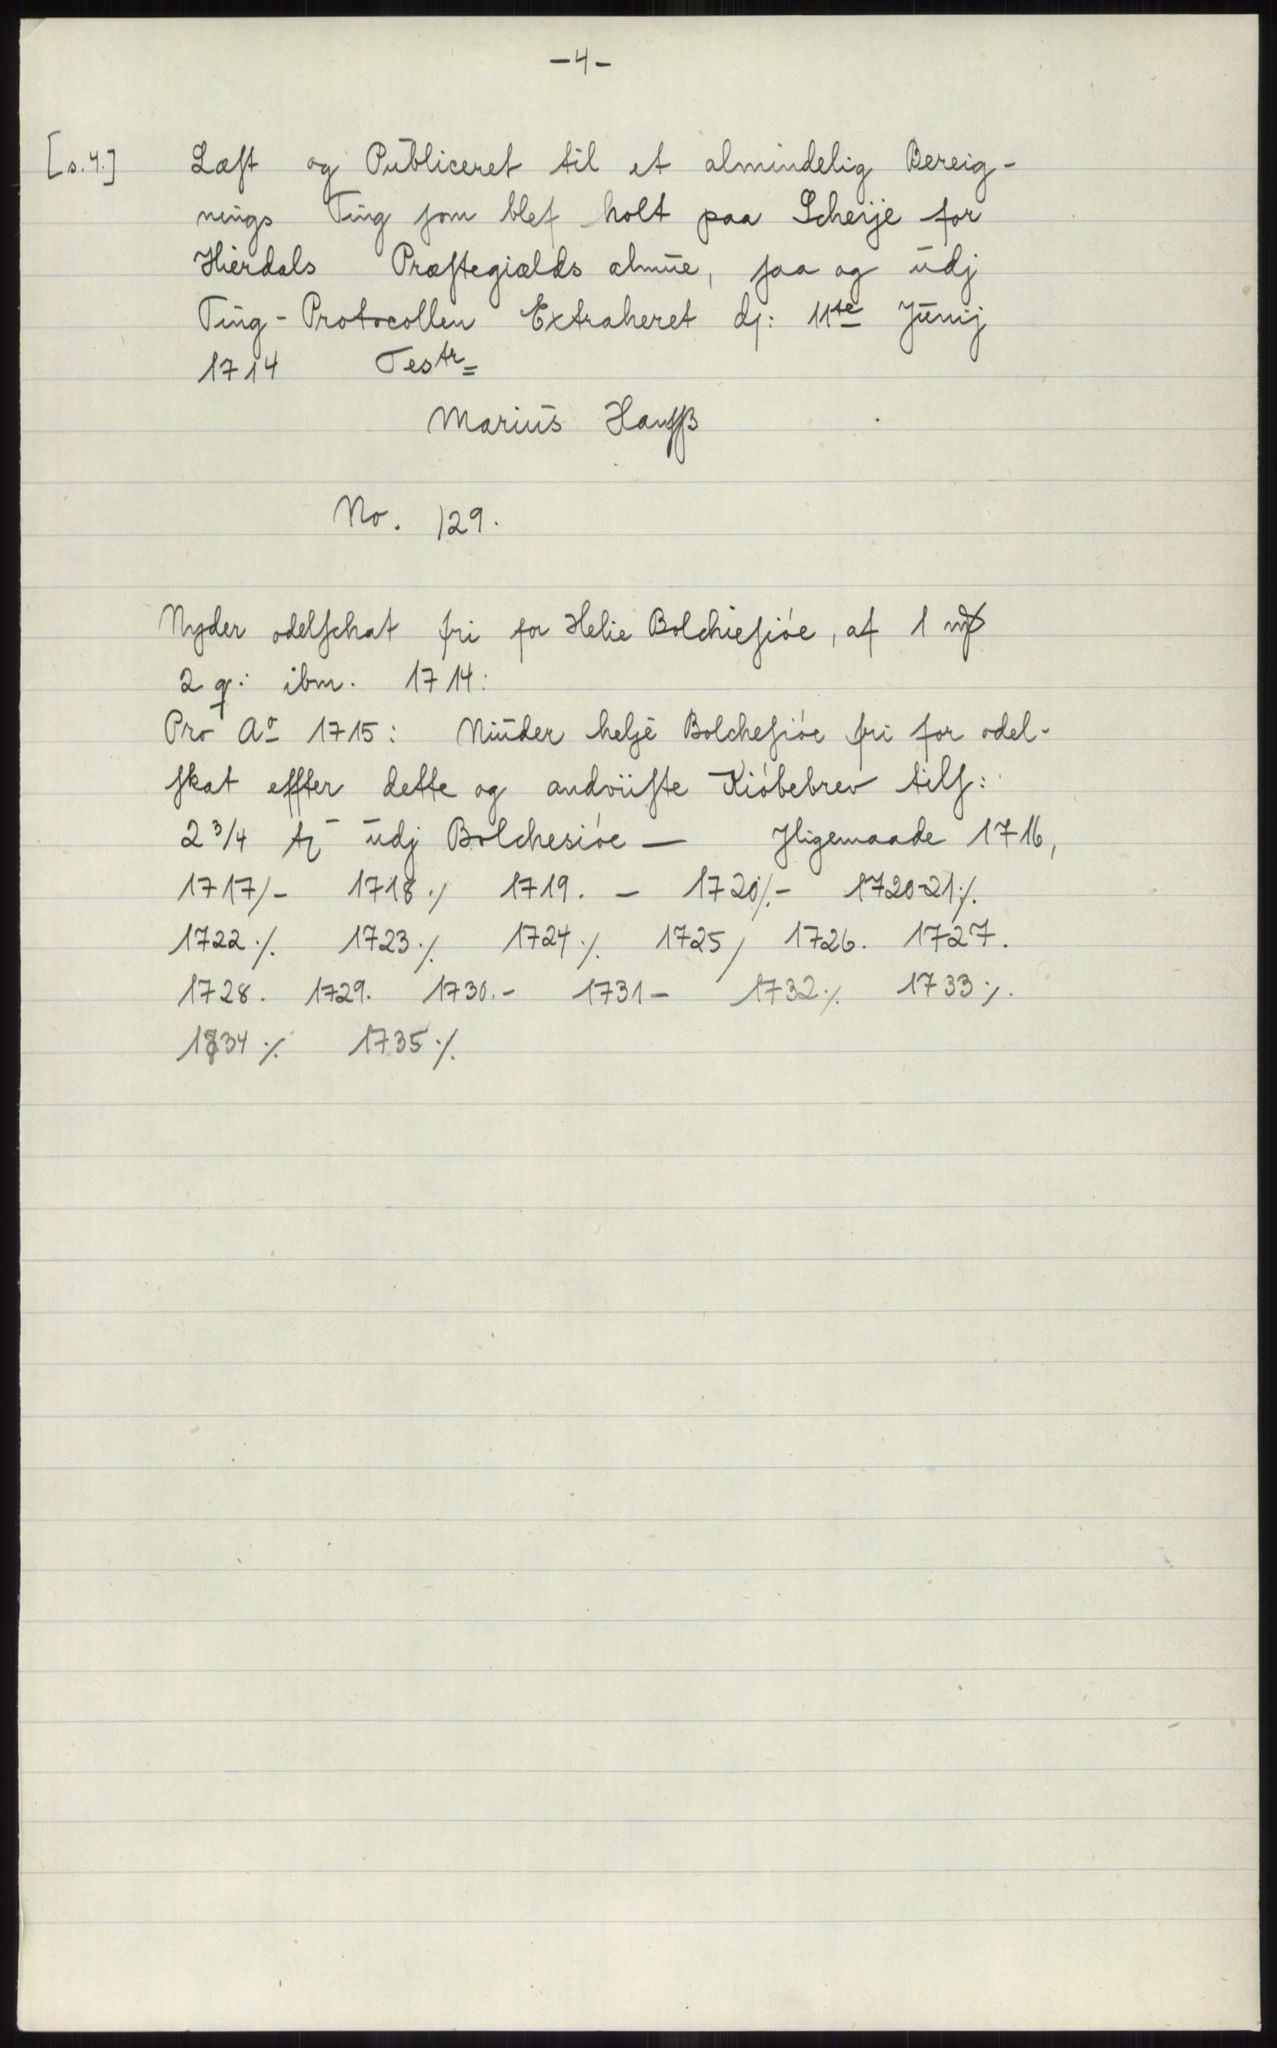 -4-
[s.4.] Læst og Publiceret til et almindelig Bereig-
nings Ting som blef holt paa Scheije for
Hierdals Præstegiælds almue, saa og udj
Ting-Protocollen Extraheret dj: 11te Junij
1714 Testr=
Marius Hansß
No. 129.
Nyder odelschat fri for Helie Bolchiesiøe, af 1
2 q: ibm. 1714:
Pro Ao 1715: Niuder helje Bolchesiøe fri for odel-
skat effter dette og andviiste Kiøbebrev tils:
2 3/4 udj Bolchesiøe — Jligemaade 1716,
1717/- 1718./ 1719. - 1720/.- 1720-21./.
1722./. 1723./. 1724./. 1725, 1726. 1727.
1728. 1729. 1730.- 1731- 1732./. 1733./.
1734./. 1735./.